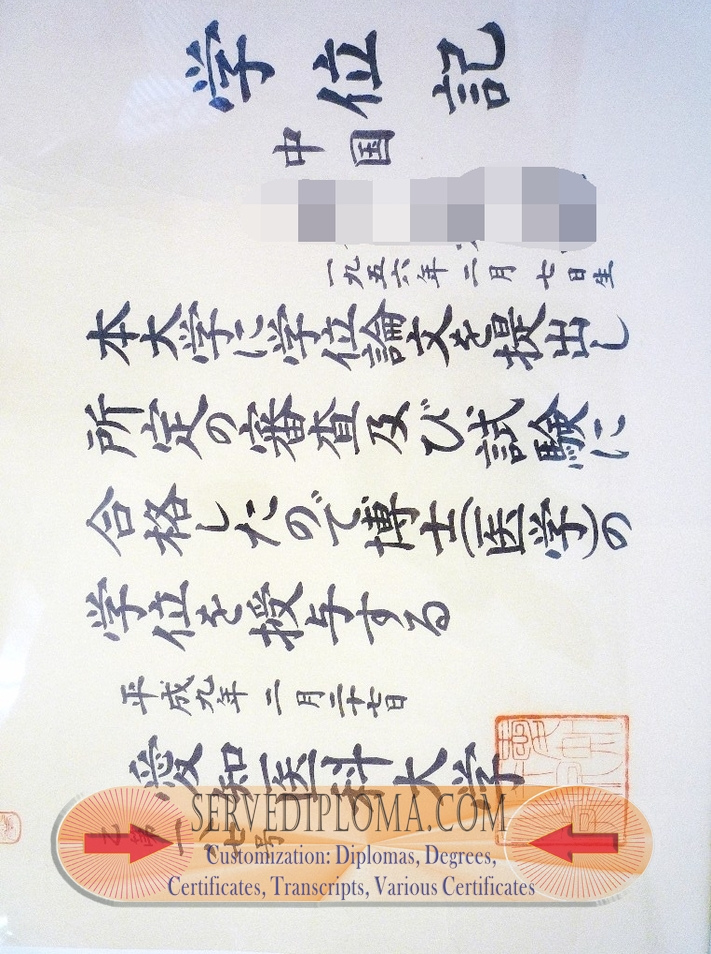 学位記
中国
一九五六年二月七日生
本大学に学位論文を提出し
所定の審査及び試験に
合格したので博士(医学)の
学位を授与する
平成九年二月二十七日
愛知医科大学
SERVEDIPLOMA.COM
Customization: Diplomas, Degrees,
Certificates, Transcripts, Various Certificates